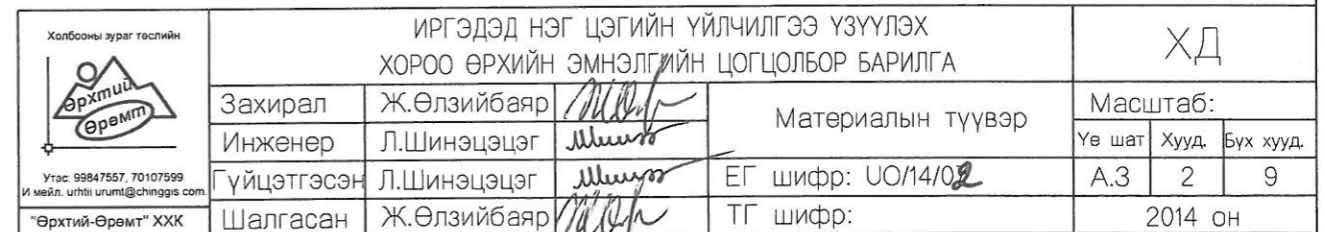 Холбооны зураг төслийн
Өрхтий
Өрөмт
Утас: 99847557, 70107599
И мейл. urhtii urumt@chinggis.com
"Өрхтий-Өрөмт" ХХК
ИРГЭДЭД НЭГ ЦЭГИЙН ҮЙЛЧИЛГЭЭ ҮЗҮҮЛЭХ
ХОРОО ӨРХИЙН ЭМНЭЛГИЙН ЦОГЦОЛБОР БАРИЛГА
ХД
Захирал Ж.Өлзийбаяр
Инженер Л.Шинэцэцэг
Гүйцэтгэсэн Л.Шинэцэцэг
Шалгасан Ж.Өлзийбаяр
Материалын түүвэр
ЕГ шифр: UO/14/02
ТГ шифр:
Масштаб:
Үе шат Хууд. Бүх хууд.
А.3 2 9
2014 он